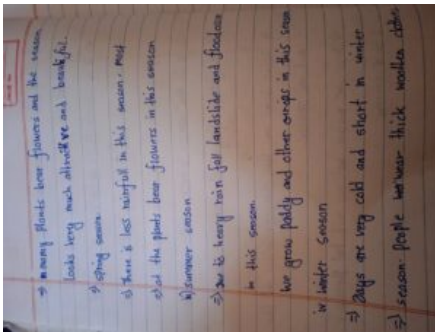 ⇒ many plants bear flowers and the season
looks very much attractive and beautiful.
⇒ spring season
⇒ there is less rainfall in this season. most
of the plants bear flowers in this season
b) summer season
⇒ Due to heavy rain fall landslide and flood
in this season.
we grow paddy and other crops in this season
in winter season
⇒ Days are very cold and short in winter
⇒ season. people wear thick woolen clothes